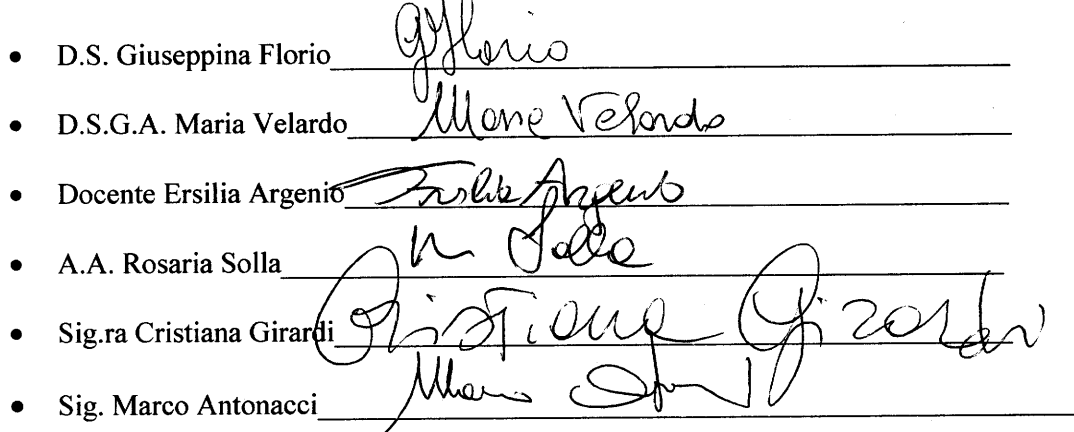 • D.S. Giuseppina Florio GFlorio
• D.S.G.A. Maria Velardo Maria Velardo
• Docente Ersilia Argenio Ersilia Argenio
• A.A. Rosaria Solla R Solla
• Sig.ra Cristiana Girardi Cristiana Girardi
• Sig. Marco Antonacci Marco